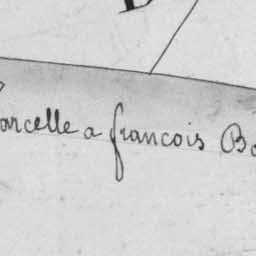 parcelle a francois